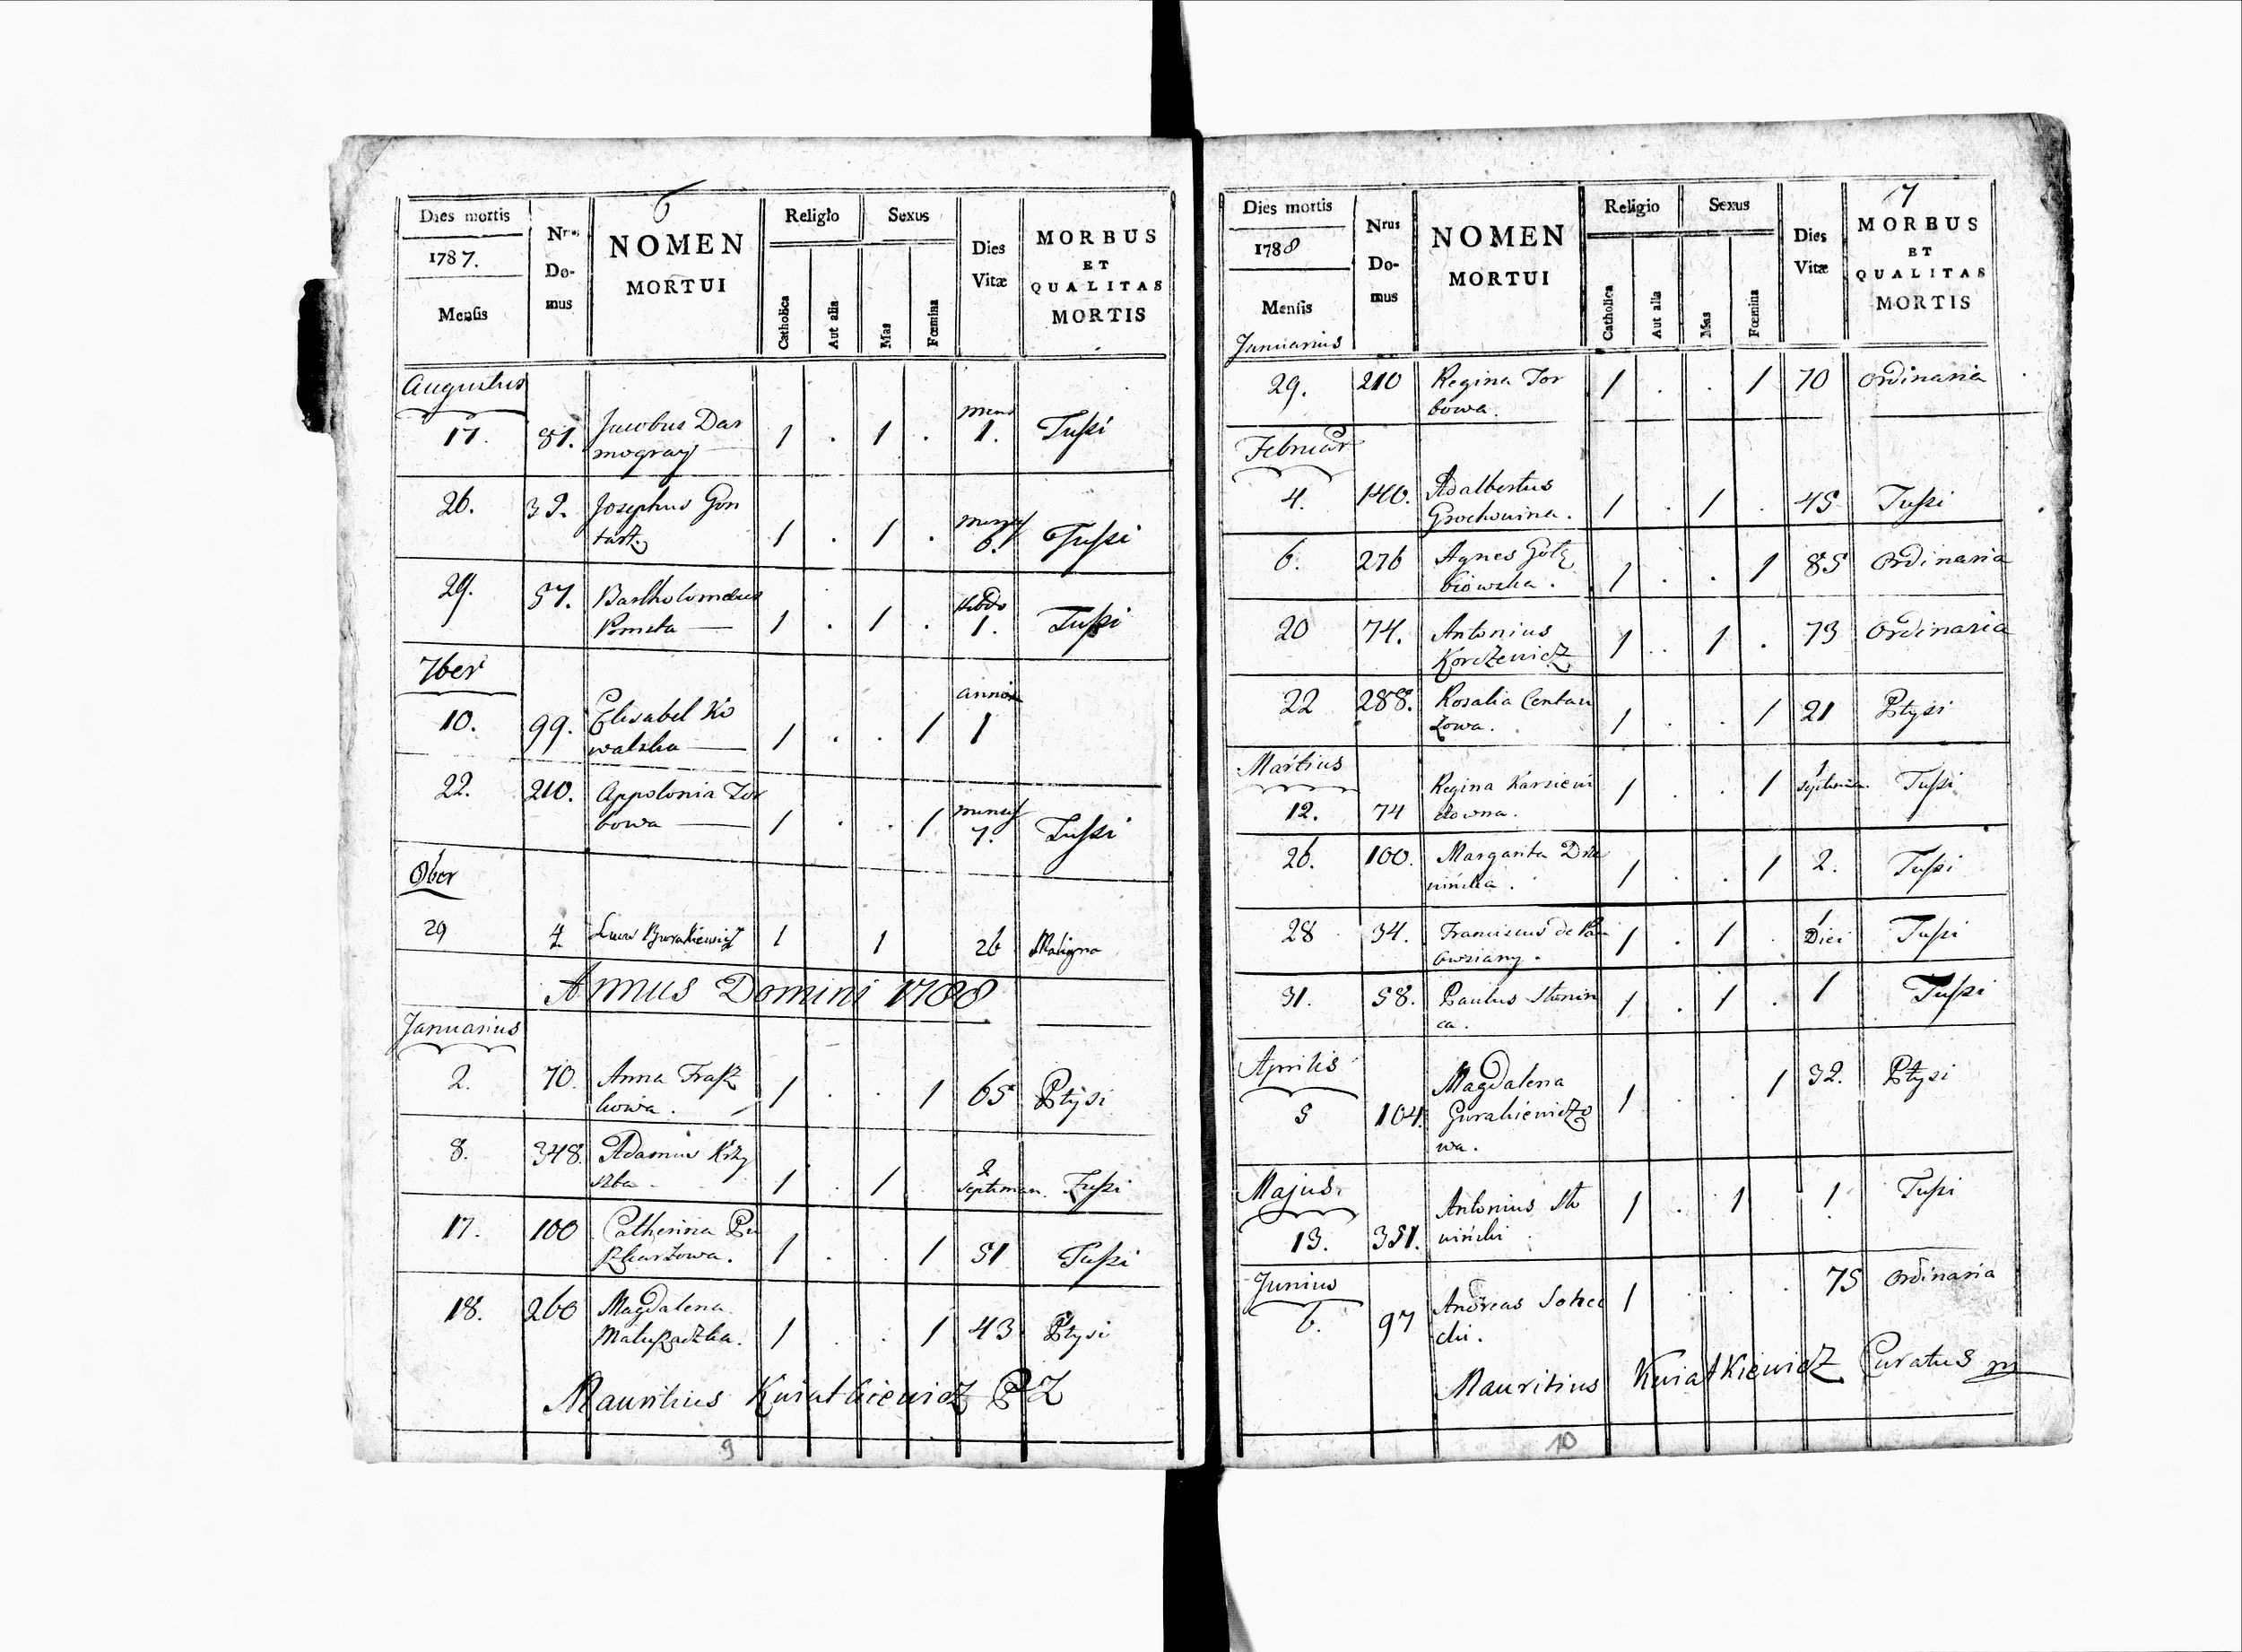 6
Dies mortis
Nrus Domus
NOMEN MORTUI
Religio
Sexus
Dies Vitæ
MORBUS ET QUALITAS MORTIS
1787.
Mensis
Catholica
Aut alia
Mas
Fœmina
Augustus
17. 81. Jacobus Dar 1 . 1 . 1. Tussi
mogray
26. 32. Josephus Gon
1 . 1 . 6. Tussi
29. 57. Bartholomæus
1 . 1 . 1. Tussi
7ber
10. 99. Elisabet Ko
walska 1 . . 1 1
22. 210. Appolonia Tor
bowa 1 . . 1 7. Tussi
8ber
29 4 Burakiewicz 1 1 26 Maligna
Annus Domini 1788
Januarius
2. 70. Anna
kowa. 1 . . 1 65 Ptysi
8. 348. Adamus Krzy
1 . 1 2 Septiman. Tussi
17. 100 Catherina Pu
1 . . 1 51 Tussi
18. 260 Magdalena
1 . . 1 43 Ptysi
Mauritius Kwiatkiewicz PZ
9
7
Dies mortis
Nrus Domus
NOMEN MORTUI
Religio
Sexus
Dies Vitæ
MORBUS ET QUALITAS MORTIS
1788
Mensis
Catholica
Aut alia
Mas
Fœmina
Januarius
29. 210 Regina Tor 1 . . 1 70 Ordinaria
bowa.
Februar
4. 140. Adalbertus
Grochowina. 1 . 1 . 45 Tussi
6. 276 Agnes Goł
biowska. 1 . . 1 85 Ordinaria
20 74. Antonius 1 . 1 . 73 Ordinaria
Korczewicz
22 288. Rosalia Centar
zowa. 1 . . 1 21 Ptysi
Martius
12. 74 Regina 1 . . 1 1 Tussi
26. 100. Margarita
1 . . 1 2. Tussi
28 34. Franciscus de 1 . 1 . 1 Diei Tussi
31. 58. Paulus Stonin 1 . 1 . 1 Tussi
ca.
Aprilis
5 104. Magdalena 1 . . 1 32. Ptysi
Gurakiewiczo
wa.
Majus.
13. 351. Antonius Sło 1 . 1 . 1 Tussi
wiński.
Junius
6. 97 Andreas 1 . . . 75 Ordinaria
Mauritius Kwiatkiewicz Curatus
10